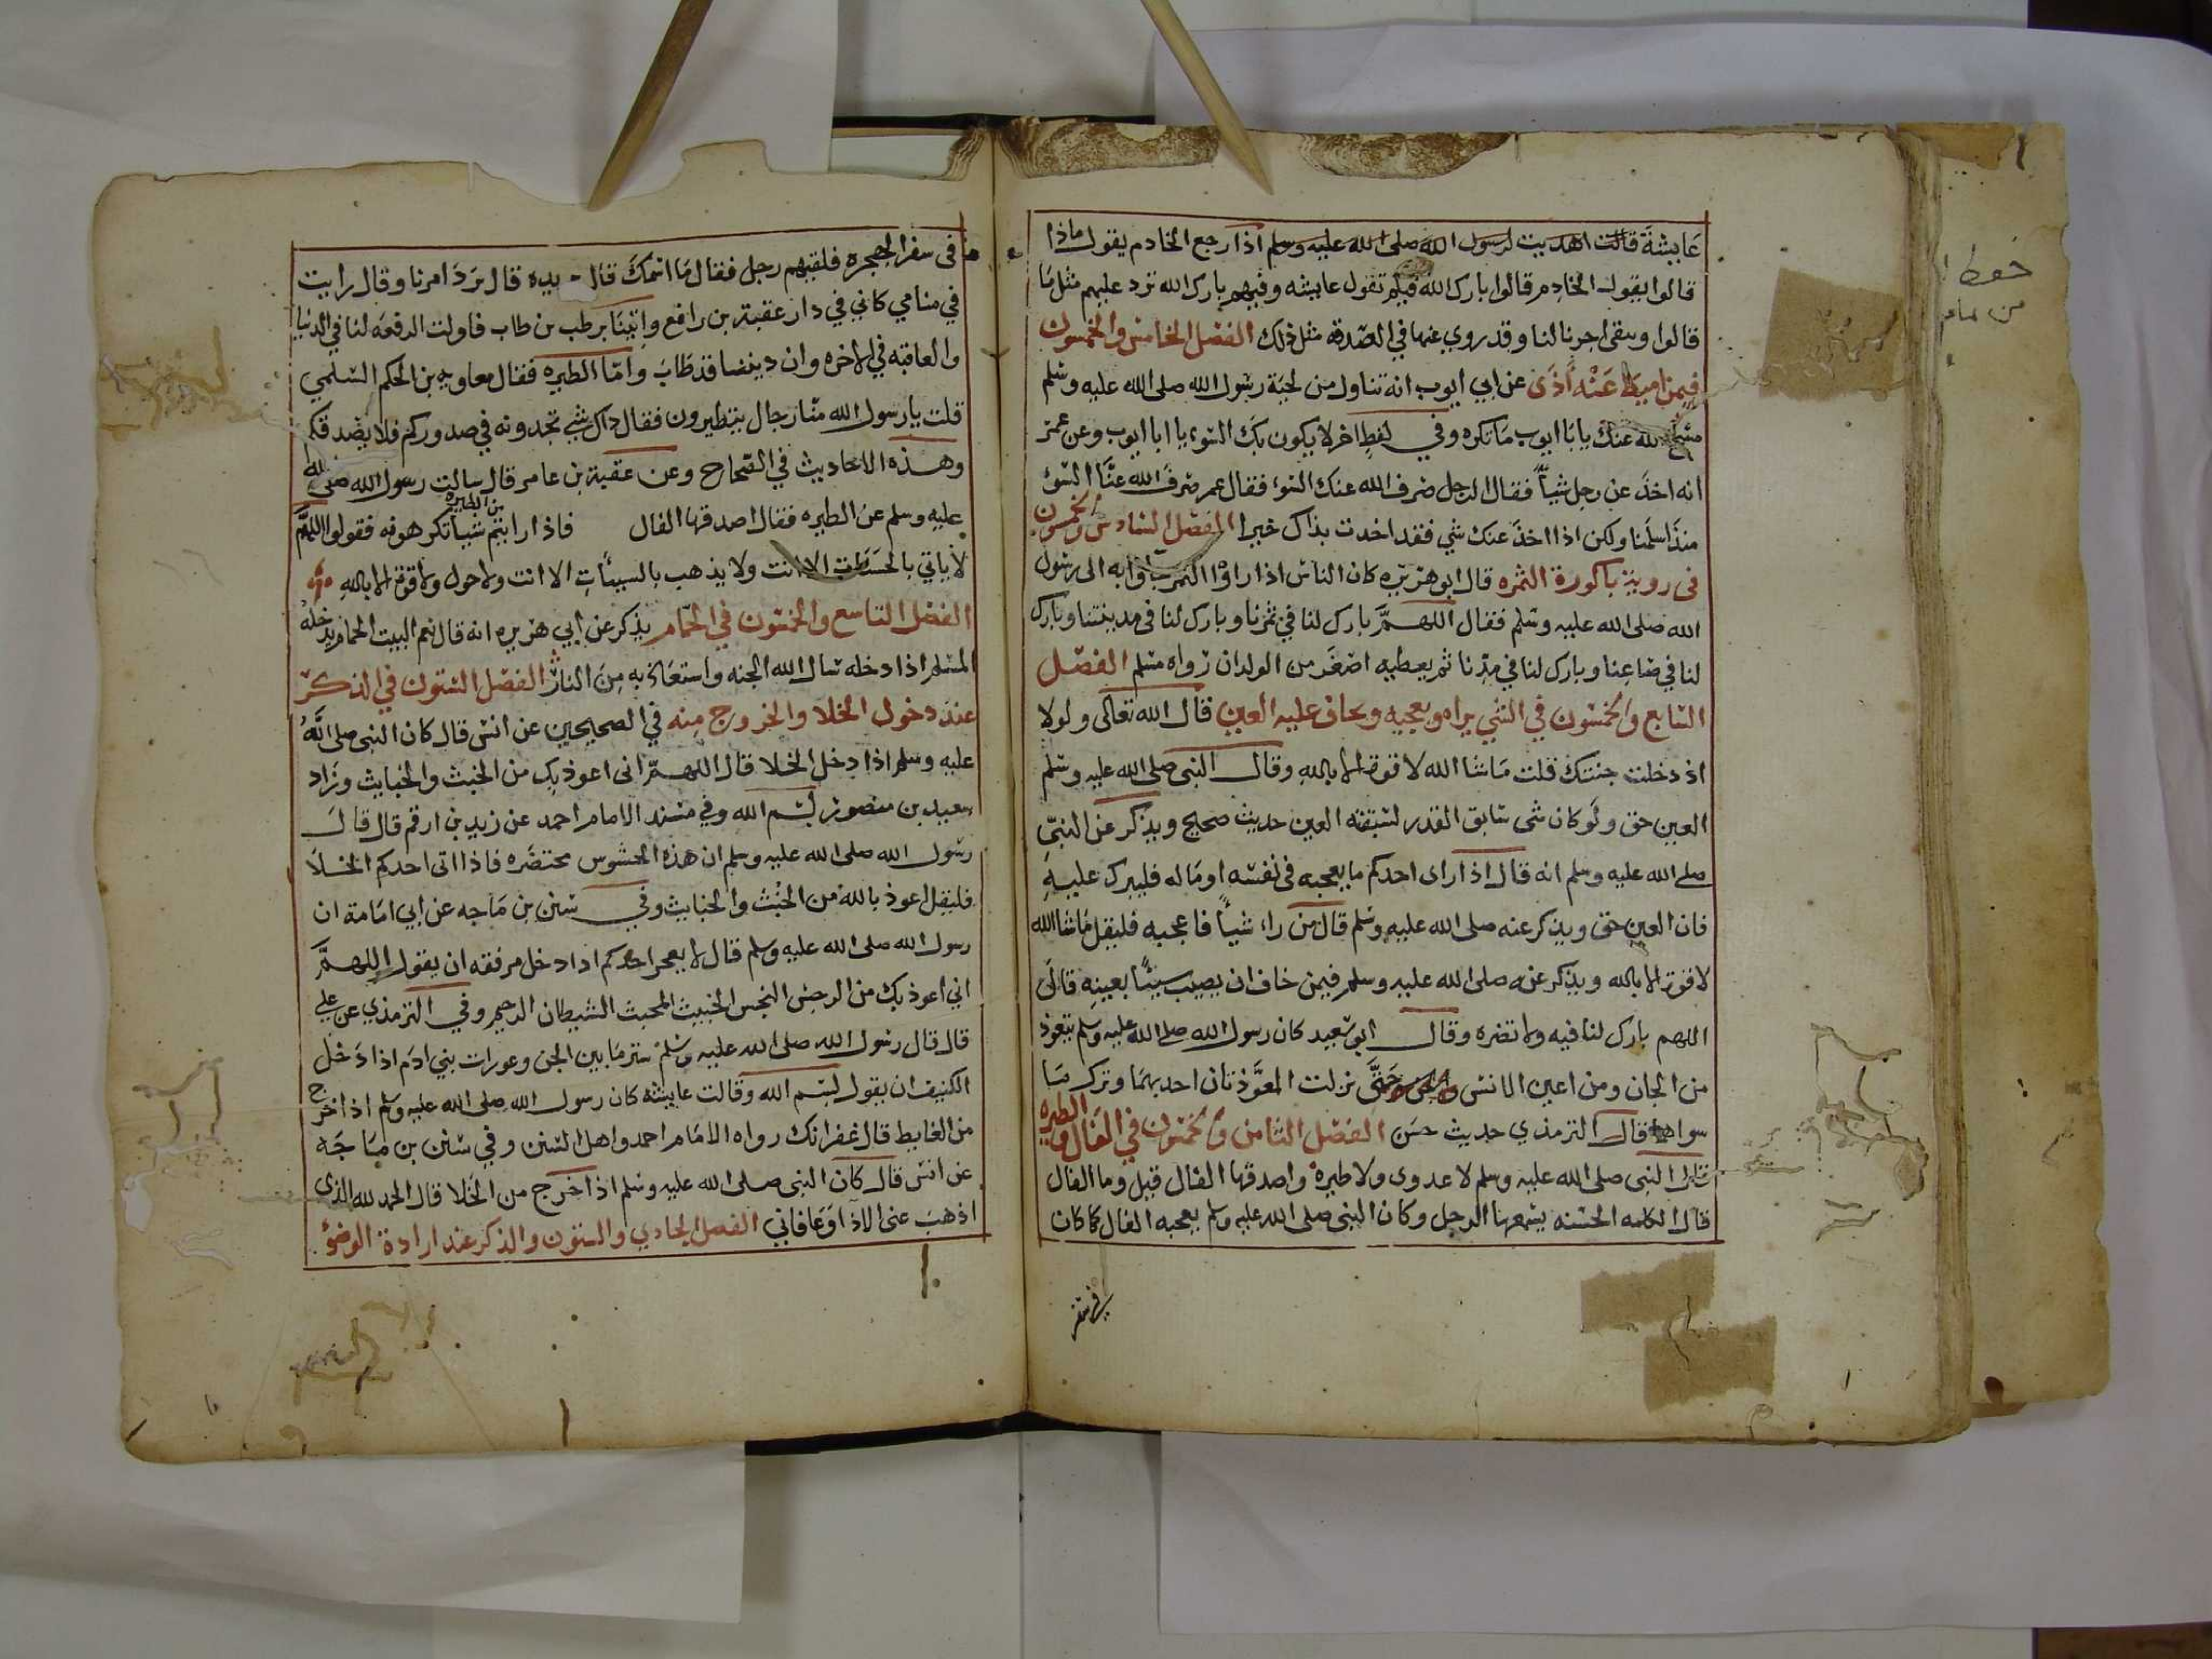 عايشة قالت اهديت لرسول الله صلى الله عليه وسلم اذا رجع الخادم يقول ماذا
قالوا يقول الخادم قالوا بارك الله فيكم تقول عايشه وفيهم بارك الله نرد عليهم مثل ما
قالوا ويبقى اجرنا لنا وقد روي عنها في الصدقة مثل ذلك الفصل الخامس والخمسون
فيمن اميط عنه اذى عن ابي ايوب انه تناول من لحية رسول الله صلى الله عليه وسلم
مسح الله عنك يا با ايوب ما تكره وفي لفظ اخر لا يكون بك السوء يا ابا ايوب وعن عمر
انه اخذ عن رجل شيأ فقال الرجل صرف الله عنك السوء فقال عمر صرف الله عنا السوء
منذ اسلمنا ولكن اذا اخذ عنك شي فقد اخدت بذاك خيرا الفصل السادس والخمسون
فى روية باكورة الثمره قال ابو هريره كان الناس اذا راوا الثمر اتوا به الى رسول
الله صلى الله عليه وسلم فقال اللهم بارك لنا في ثمرنا وبارك لنا فى مدينتنا وبارك
لنا في صاعنا وبارك لنا في مدنا ثم يعطيه اصغر من الولدان رواه مسلم الفصل
السابع والخمسون في الشي يراه ويعجبه ويخاف عليه العين قال الله تعالى ولولا
اذ دخلت جنتك قلت ما شا الله لا قوة الا بالله وقال النبى صلى الله عليه وسلم
العين حق ولو كان شى سابق القدر لسبقته العين حديث صحيح ويذكر عن النبي
صلى الله عليه وسلم انه قال اذا راى احدكم ما يعجبه فى نفسه او ماله فليبرك عليه
فان العين حق ويذكر عنه صلى الله عليه وسلم قال من راء شيأ فاعجبه فليقل ماشا الله
لا قوة الا بالله ويذكر عنه صلى الله عليه وسلم فيمن خاف ان يصيب سيئا بعينه قال
اللهم بارك لنا فيه ولا تضره وقال ابو سعيد كان رسول الله صلى الله عليه وسلم يتعوذ
من الجان ومن اعين الانس حتى نزلت المعوذتان اخد بهما وترك ما
سواها قال الترمذي حديث حسن الفصل الثامن والخمسون في الفال والطيره
قال النبى صلى الله عليه وسلم لا عدوى ولا طيرة واصدقها الفال قيل وما الفال
قال الكلمه الحسنه يسمعها الرجل وكان النبى صلى الله عليه وسلم يعجبه الفال كما كان
في سفر
في سفر الهجره فلقيهم رجل فقال ما اسمك قال بريده قال برد امرنا وقال رايت
في منامي كاني في دار عقبة بن رافع واتينا برطب بن طاب فاولت الرفعه لنا في الدنيا
والعاقبه في الاخره وان ديننا قد طاب واما الطيره فقال معاويه بن الحكم السلمي
قلت يا رسول الله منا رجال يتطيرون فقال ذاك شي تجدونه في صدوركم فلا يصدقكم
وهذه الاحاديث في الصحاح وعن عقبة بن عامر قال سالت رسول الله صلى الله
عليه وسلم عن الطيره فقال اصدقها الفال فاذا رايتم من الطيره شيأ تكرهونه فقولوا اللهم
لا ياتي بالحسنات الا انت ولا يذهب بالسيئات الا انت ولا حول ولا قوة الا بالله
الفصل التاسع والخمسون في الحمام يذكر عن ابي هريره انه قال نعم البيت الحمام يدخله
المسلم اذا دخله سال الله الجنه واستعاذ به من النار الفصل الستون في الذكر
عند دخول الخلا والخروج منه في الصحيحين عن انس قال كان النبى صلى الله
عليه وسلم اذا دخل الخلا قال اللهم انى اعوذ بك من الخبث والخبايث وزاد
سعيد بن منصور بسم الله وفي مسند الامام احمد عن زيد بن ارقم قال قال
رسول الله صلى الله عليه وسلم ان هذه الحشوس محتضره فاذا اتى احدكم الخلا
فليقل اعوذ بالله من الخبث والخبايث وفي سنن بن ماجه عن ابي امامة ان
رسول الله صلى الله عليه وسلم قال لا يعجز احدكم اذا دخل مرفقه ان يقول اللهم
اني اعوذ بك من الرجس النجس الخبيث المخبث الشيطان الرجيم وفي الترمذي عن علي
قال قال رسول الله صلى الله عليه وسلم ستر ما بين الجن وعورات بني ادم اذا دخل
الكنيف ان يقول بسم الله وقالت عايشة كان رسول الله صلى الله عليه وسلم اذا خرج
من الغايط قال غفرانك رواه الامام احمد واهل السنن وفي سنن بن ماجه
عن انس قال كان النبى صلى الله عليه وسلم اذا خرج من الخلا قال الحمد لله الذى
اذهب عنى الاذا وعافاني الفصل الحادي والستون والذكر عند ارادة الوضؤ